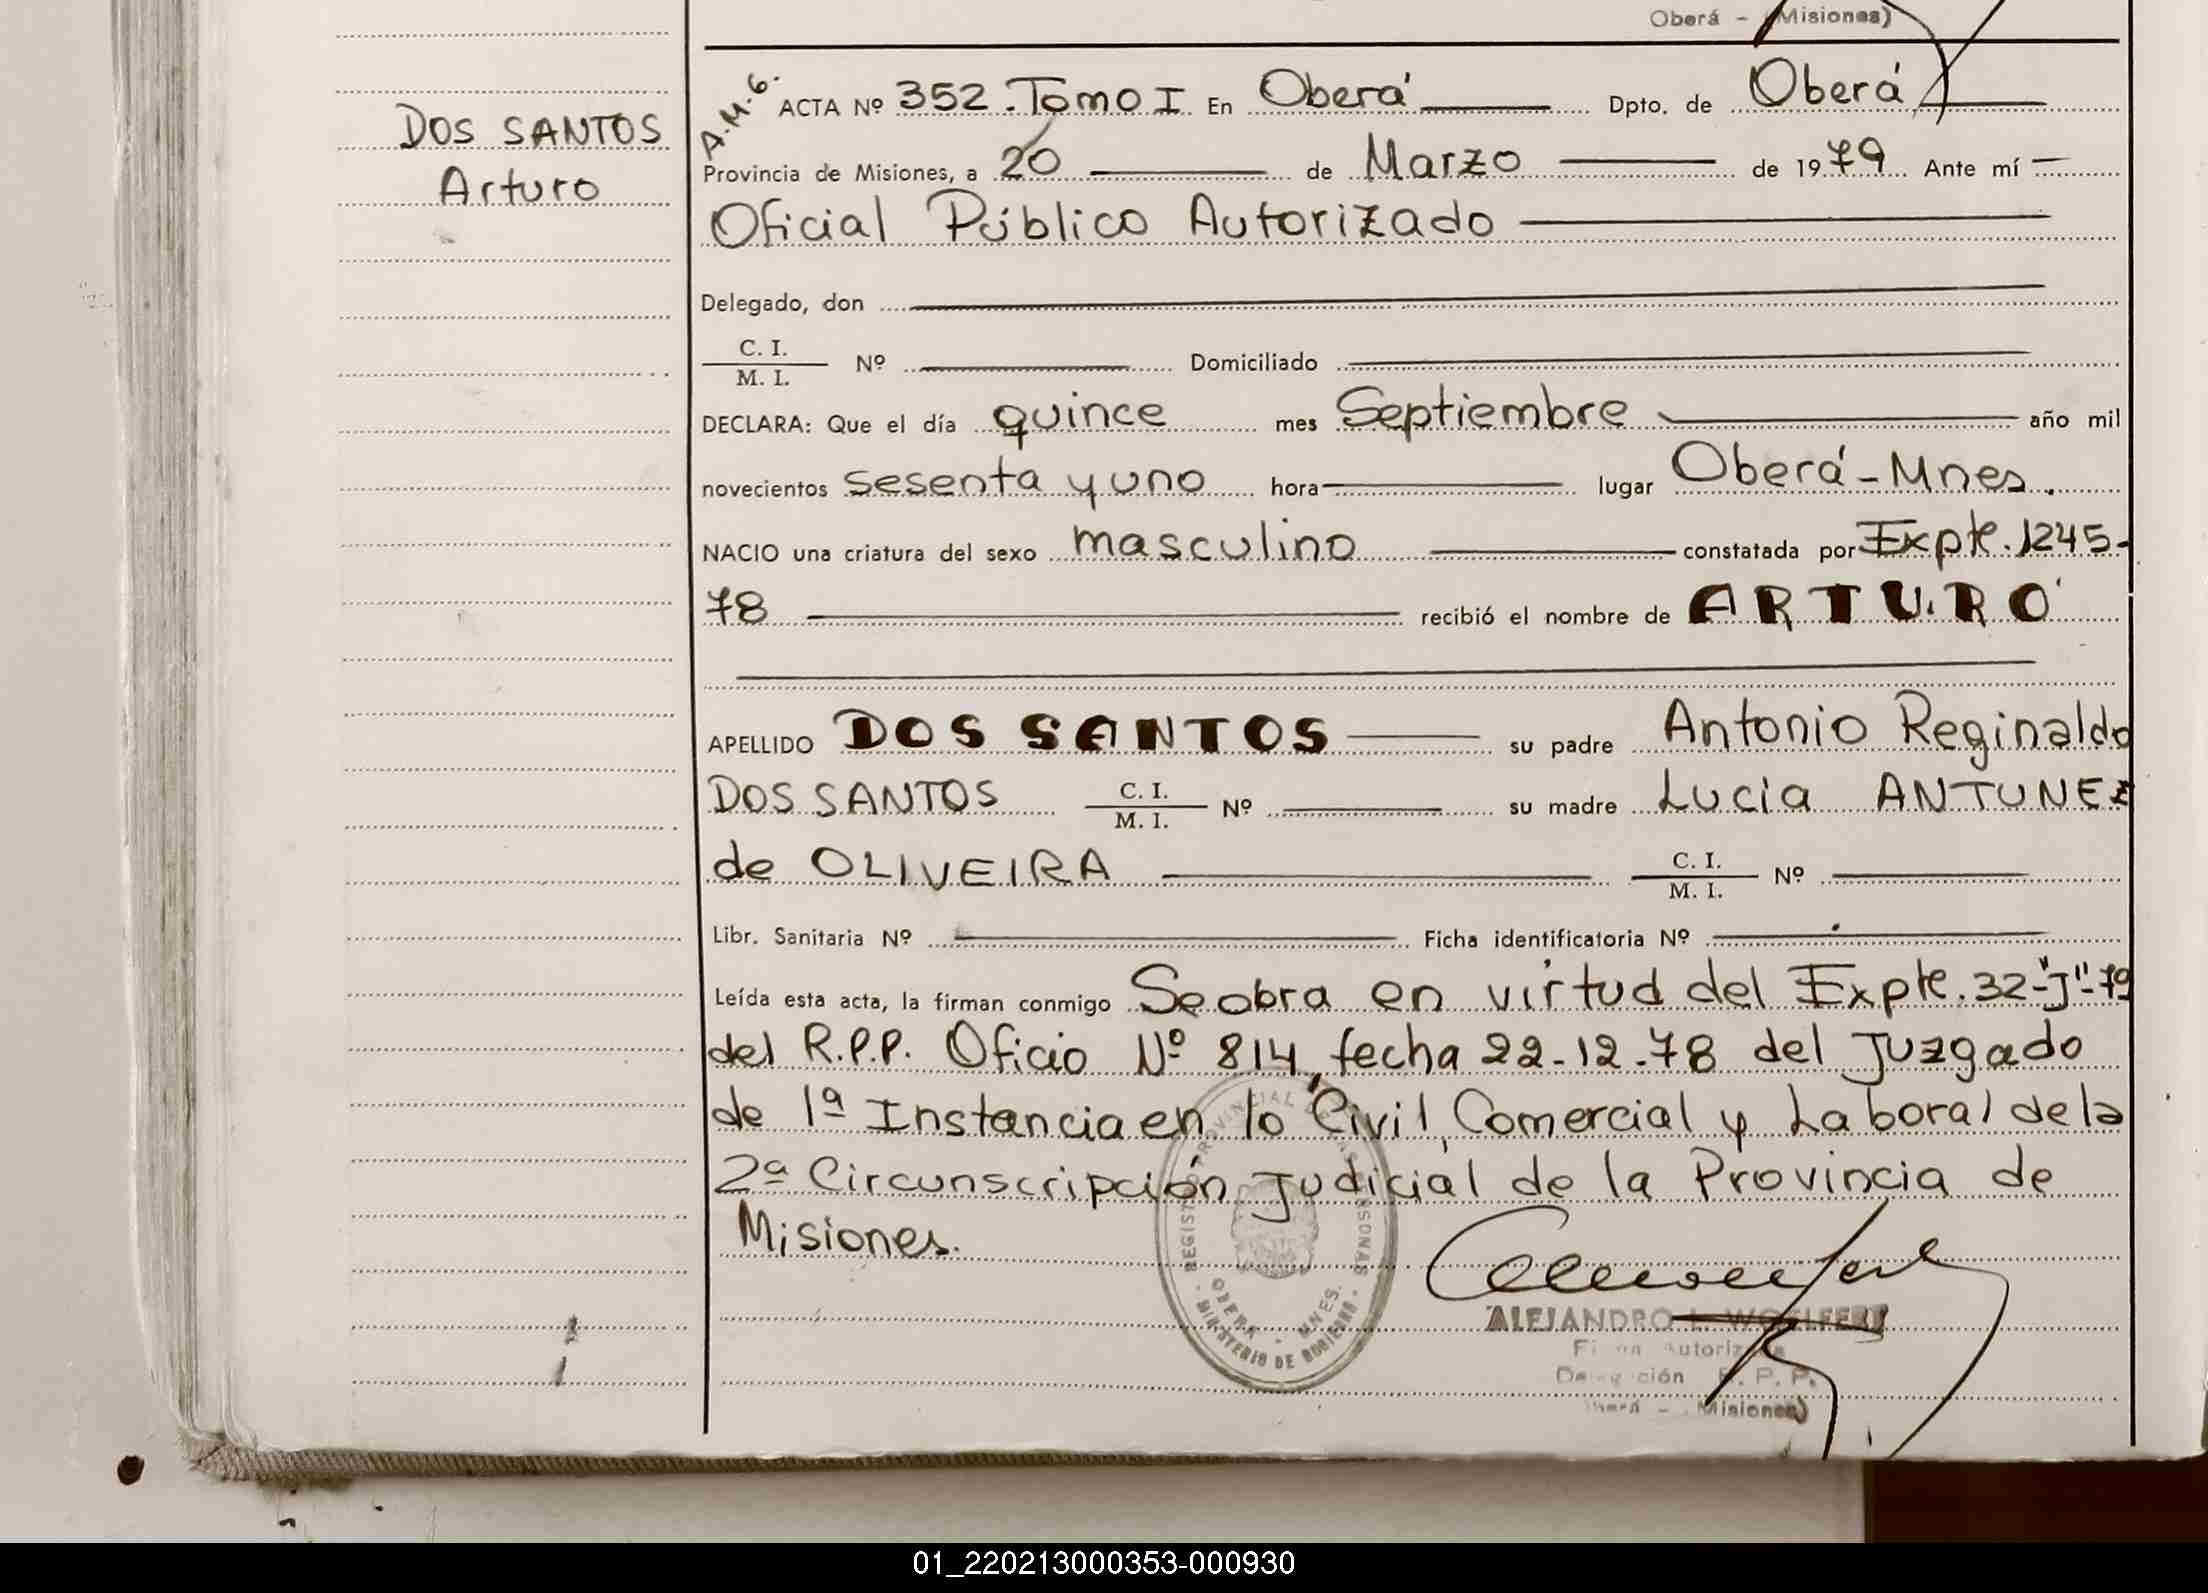 Oberá - (Misiones)
DOS SANTOS
Arturo
A.M.6.
ACTA Nº 352. Tomo I En Oberá Dpto. de Oberá
Provincia de Misiones, a 20 de Marzo de 1979 Ante mí
Oficial Público Autorizado
Delegado, don
C. I.
M. I. Nº Domiciliado
DECLARA: Que el día quince mes Septiembre año mil
novecientos sesenta y uno hora lugar Oberá-Mnes.
NACIO una criatura del sexo masculino constatada por Expte. 1245-
78 recibió el nombre de ARTURO
APELLIDO DOS SANTOS su padre Antonio Reginaldo
DOS SANTOS C. I. M. I. Nº su madre Lucia ANTUNEZ
de OLIVEIRA C. I. M. I. Nº
Libr. Sanitaria Nº Ficha identificatoria Nº
Leída esta acta, la firman conmigo Se obra en virtud del Expte. 32-"J"-79
del R.P.P. Oficio Nº 814, fecha 22-12-78 del Juzgado
de 1ª Instancia en lo Civil, Comercial y Laboral de la
2ª Circunscripción Judicial de la Provincia de
Misiones.
REGISTRO PROVINCIAL DE LAS PERSONAS
OBERA - MNES.
MINISTERIO DE GOBIERNO
ALEJANDRO L. WOELFERT
Firma Autorizada
Delegación R. P. P.
Oberá - (Misiones)
01_220213000353-000930